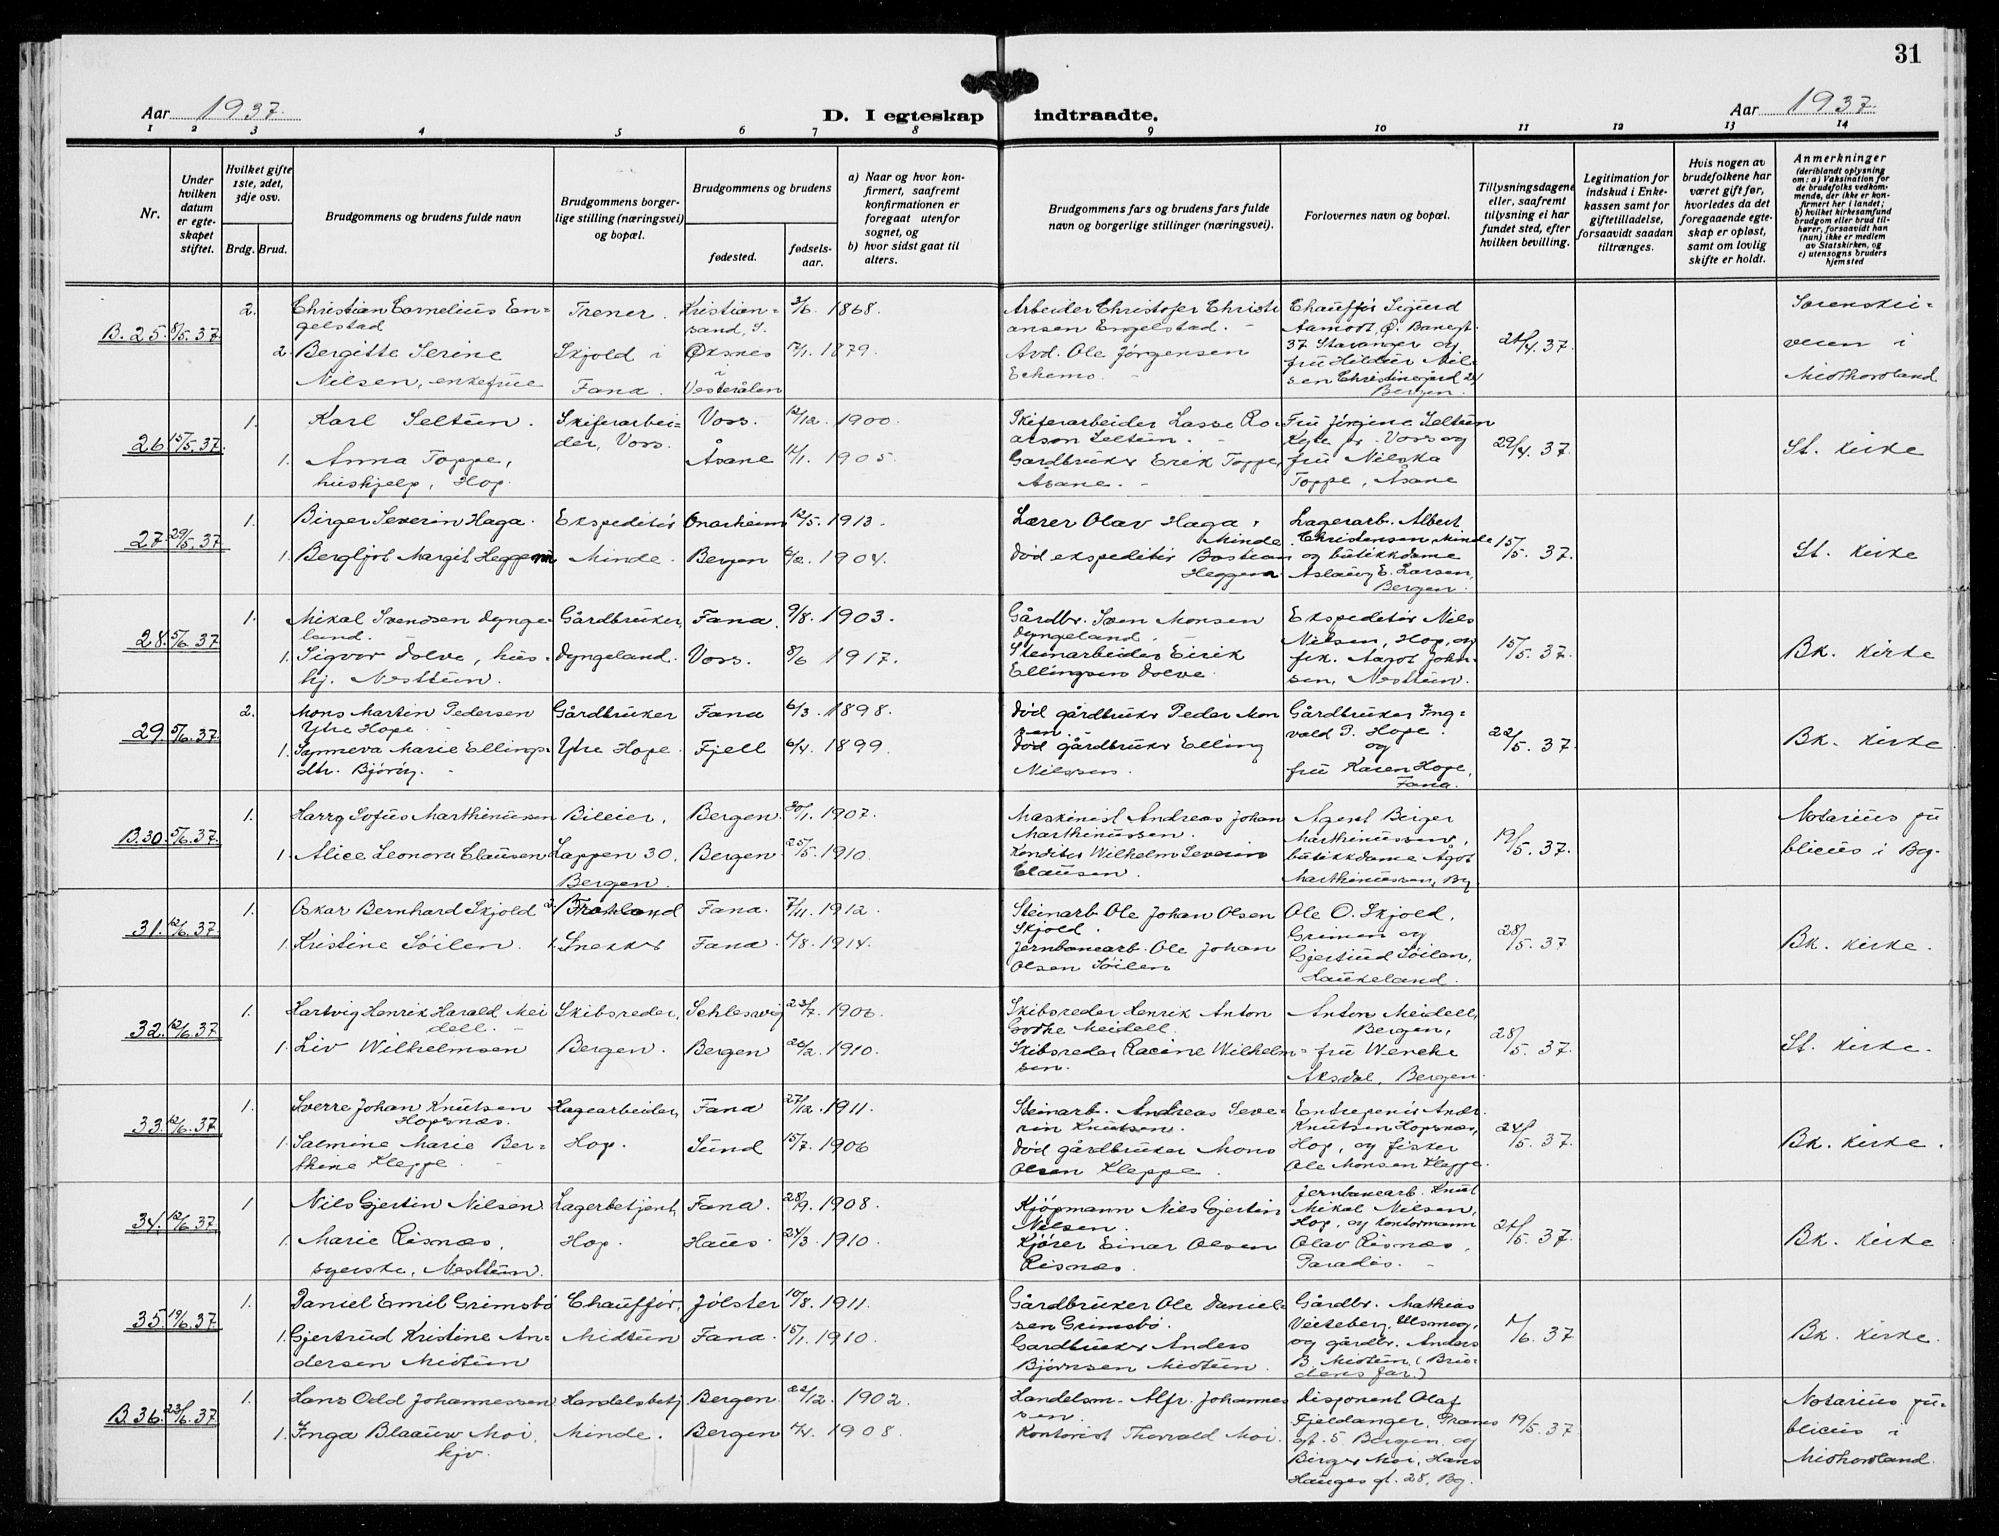 31
Aar 1937.
D. I egteskap indtraadte.
Aar 1937.
1 2 3 4 5 6 7 8 9 10 11 12 13 14
Nr.
Under hvilken datum er egteskapet stiftet.
Hvilket gifte 1ste, 2det, 3dje osv.
Brdg. Brud.
Brudgommens og brudens fulde navn
Brudgommens borgerlige stilling (næringsvei) og bopæl.
Brudgommens og brudens
fødested.
fødselsaar.
a) Naar og hvor konfirmert, saafremt konfirmationen er foregaat utenfor sognet, og
b) hvor sidst gaat til alters.
Brudgommens fars og brudens fars fulde navn og borgerlige stillinger (næringsvei).
Forlovernes navn og bopæl.
Tillysningsdagene eller, saafremt tillysning ei har fundet sted, efter hvilken bevilling.
Legitimation for indskud i Enkekassen samt for giftetilladelse, forsaavidt saadan tiltrænges.
Hvis nogen av brudefolkene har været gift før, hvorledes da det foregaaende egteskap er opløst, samt om lovlig skifte er holdt.
Anmerkninger
(deriblandt oplysning om: a) Vaksination for de brudefolks vedkommende, der ikke er konfirmert her i landet; b) hvilket kirkesamfund brudgom eller brud tilhører, forsaavidt han (hun) ikke er medlem av Statskirken, og c) utensogns bruders hjemsted
B. 25. 8/5.37. 2. Christian Cornelius Engelstad Trener. Kristiansand, S. 3/6 1868. Arbeider Christofer Christiansen Engelstad. Chauffør Sigurd Aamodt, Ø. Banegt. 37 Stavanger og 24/4.37. Sorenskriveren i Midthordland
2. Bergitte Serine Nilsen, enkefrue Skjold i Fana. Øksnes i Vesterålen 1879. Avd. Ole Jørgensen fru Hildur Nilsen Christinegård 24 Bergen.
26 15/5.37. 1. Karl Seltun. Skiferarbeider, Voss. Voss. 12/12. 1900. Skiferarbeider Lasse Seltun. Fru Jørgine Seltun Voss og 29/4.37. St. Kirke
1. Anna Toppe, huskjelp, Hop. Åsane 1905. Gardbruker Erik Toppe, Åsane. fru Nilska Toppe, Åsane
27. 29/5.37 1. Birger Severin Haga. Ekspeditør Onarheim 12/5. 1913. Lærer Olav Haga, Minde. Lagerarb. Albert Christensen Minde 15/5.37. St. Kirke
1. Bergljot Margit Heggem Minde. Bergen 6/2. 1904. Død ekspeditør Bastian Heggem og butikkdame Aslaug E. Larsen, Bergen.
28. 5/6.37 1. Mikal Svendsen Dyngeland. Gårdbruker, Fana. 9/8. 1903. Gårdbr. Sven Monsen Dyngeland. Ekspeditør Nils Nilsen, Hop, og 15/5.37. Bk. Kirke
1. Sigvor Dolve, hushj. Nesttun. Dyngeland. Voss. 8/6 1917. Steinarbeider Eirik Ellingsen Dolve. frk. Aagot Johnsen, Nesttun.
29. 5/6.37. 2. Mons Martin Pedersen Ytre Hope. Gårdbruker Fana 6/3. 1898. Død gårdbruker Peder Monsen. Gårdbruker Ingvald P. Hope. og 22/5.37. Bk. Kirke
1. Synneva Marie Ellingsdtr. Bjørøy. Ytre Hope. Fjell 6/4. 1899. Død gårdbruker Elling Nilssen. fru Karen Hope, Fana.
B.30. 5/6.37. 1. Harry Sofus Marthinussen Bileier, Bergen. 30/1. 1907. Maskinist Andreas Johan Marthinussen. Agent Birger Marthinussen, 19/5.37. Notarius publicus i Bg.
1. Alice Leonora Clausen Lappen 30. Bergen. Bergen. 25/5. 1910. Konditor Wilhelm Severin Clausen. butikkdame Ågot Marthinussen, Bg.
31. 12/6.37. 1. Oskar Bernhard Skjold 2. Fana. 7/11. 1912. Steinarb. Ole Johan Olsen Skjold. Ole O. Skjold, Grimen og 28/5.37. Bk. Kirke.
1. Kristine Søilen. 1. Snekker Fana. 1914. Jernbanearb. Ole Johan Olsen Søilen Gjertrud Søilen, Haukeland.
32. 12/6.37. 1. Hartvig Henrik Harald Meidell. Skibsreder, Schlesvig 23/7. 1906. Skibsreder Henrik Anton Godtke Meidell. Anton Meidell, Bergen, 28/5.37. St. Kirke.
1. Liv Wilhelmsen Bergen. Bergen. 26/2. 1910. Skibsreder Racine Wilhelmsen. fru Wencke Aksdal, Bergen.
33. 12/6.37 1. Sverre Johan Knutsen Hopsnæs. Hagearbeider, Fana 27/12. 1911. Steinarb. Andreas Severin Knutsen. Entrepenør Andr. Knutsen Hopsnæs, 24/5.37. Bk. Kirke.
1. Salmine Marie Berthine Kleppe. Hop. Sund 15/7. 1906 Død gårdbruker Mons Olsen Kleppe. Hop, og fisker Ole Monsen Kleppe.
34. 12/6.37. 1 Nils Gjertin Nilsen Lagerbetjent, Fana. 28/9. 1908. Kjøpmann Nils Gjertin Nilsen. Jernbanearb. Knut Mikal Nilsen, 24/5.37. Bk. Kirke
1. Marie Risnæs, syerske, Nesttun. Hop. Haus. 24/3. 1910. Kjører Einar Olsen Risnæs. Hop, og kontormann Olav Risnæs, Paradis.
35. 19/6.37. 1. Daniel Emil Grimsbø Chauffør, Jølster 10/8. 1911. Gårdbruker Ole Danielsen Grimsbø. Gårdbr. Mathias Veiteberg, 1/6.37 Bk. Kirke.
1. Gjertrud Kristine Andersen Midtun Midtun Fana. 15/1. 1910. Gardbruker Anders Bjørnsen Midtun. og gårdbr. Anders B. Midtun. (Brudens far.)
B.36. 23/6.37. 1. Hans Odd Johannessen Handelsbetj. Bergen. 22/12. 1902. Handelsm. Alfr. Johannessen Disponent Olaf Fjeldanger, gt. 5 Bergen, og 19/5.37 Notarius publicus i Midhordland.
1. Inga Blaauw Moi, Minde. Bergen 1908. Kontorist Thorvald Moi. Birger Moi, Hans Hauges gt. 28, Bg.